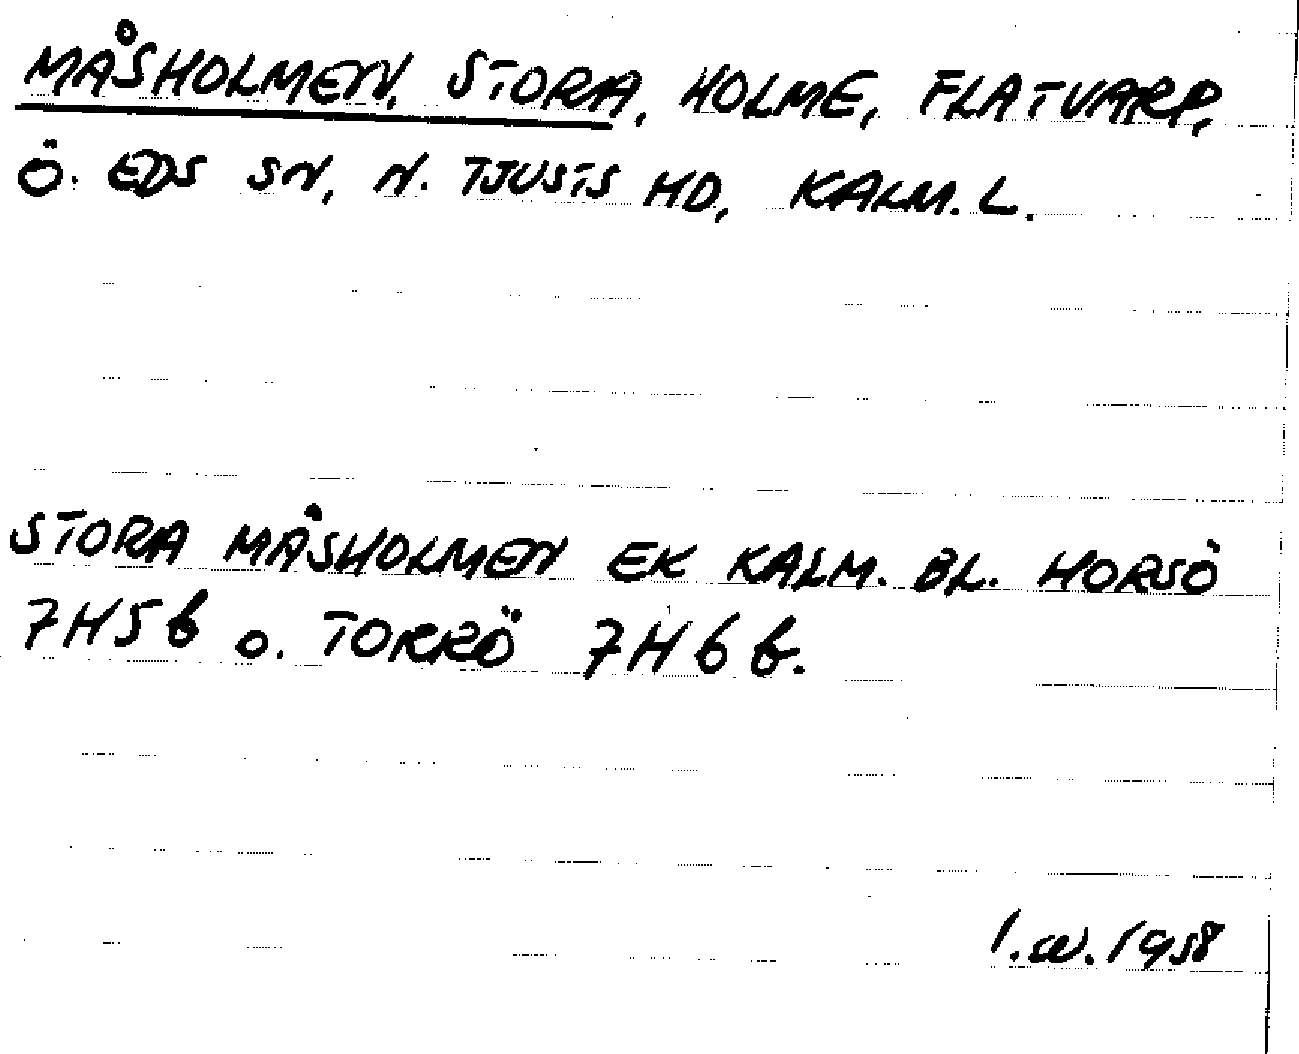 MÅSHOLMEN, STORA, HOLME, FLATVARP,
Ö. EDS SN, N. TJUSTS HD, KALM. L.
STORA MÅSHOLMEN EK KALM. BL. HORSÖ
7H5b o. TORRÖ 7H6b.
1.w.1958